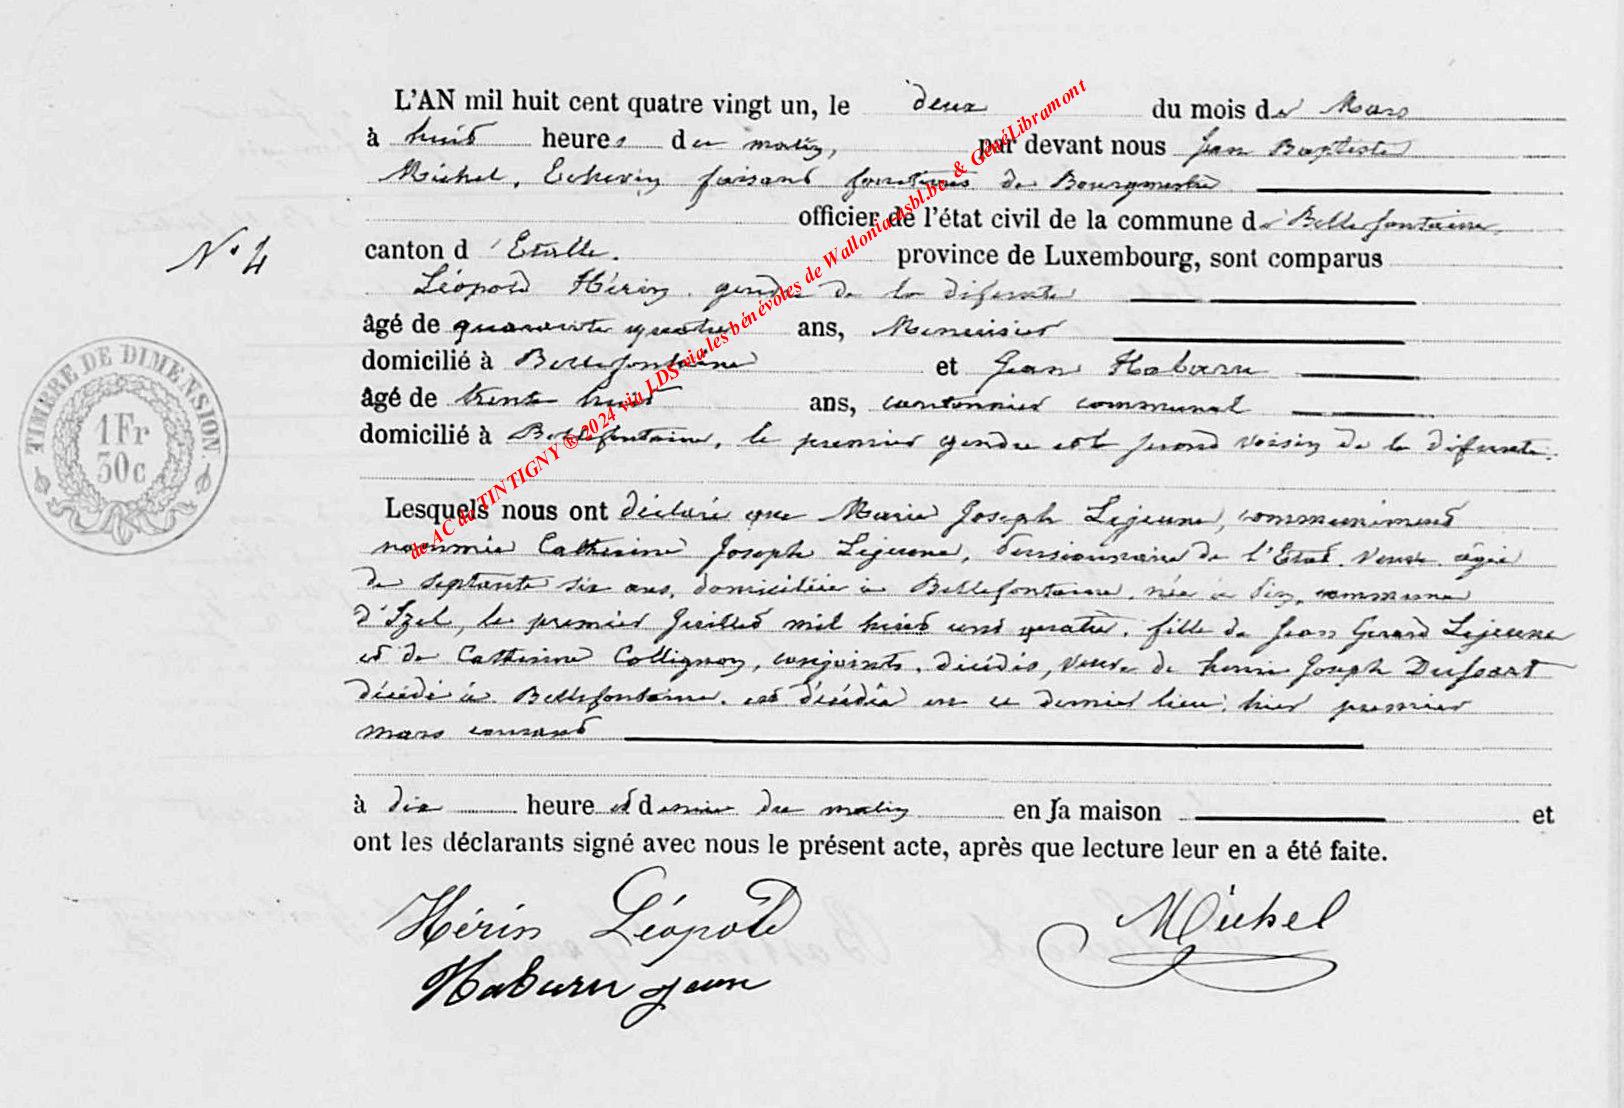 L'AN mil huit cent quatre vingt un, le deux du mois de Mars
à huit heures du matin, par devant nous Jean Baptiste
Michel, Echevin faisant fonctions de Bourgmestre
officier de l'état civil de la commune de Bellefontaine
N° 4
canton d'Etalle. province de Luxembourg, sont comparus
Léopold Hérin, gendre de la défunte
âgé de quarante quatre ans, Menuisier
domicilié à Bellefontaine et Jean Haburu
âgé de trente huit ans, cantonnier communal
domicilié à Bellefontaine, le premier gendre et le second voisin de la défunte.
TIMBRE DE DIMENSION.
1 Fr
50 c
Lesquels nous ont déclaré que Marie Joseph Lejeune, communément
nommée Catherine Joseph Lejeune, Pensionnaire de l'Etat, Veuve, agée
de septante six ans, domiciliée à Bellefontaine, née à commune
d'Izel, le premier Juillet mil huit cent quatre, fille de Jean Gerard Lejeune
et de Catherine Collignon, conjoints, décédés, Veuve de henri Joseph Dussart
décédé à Bellefontaine, est décédée en ce dernier lieu, hier premier
mars courant
à dix heure et demie du matin en sa maison et
ont les déclarants signé avec nous le présent acte, après que lecture leur en a été faite.
Hérin Léopold
Michel
Haburu jean
de AC de TINTIGNY ® 2024 via LDS via les bénévoles de Wallonia asbl.be & GénéLibramont